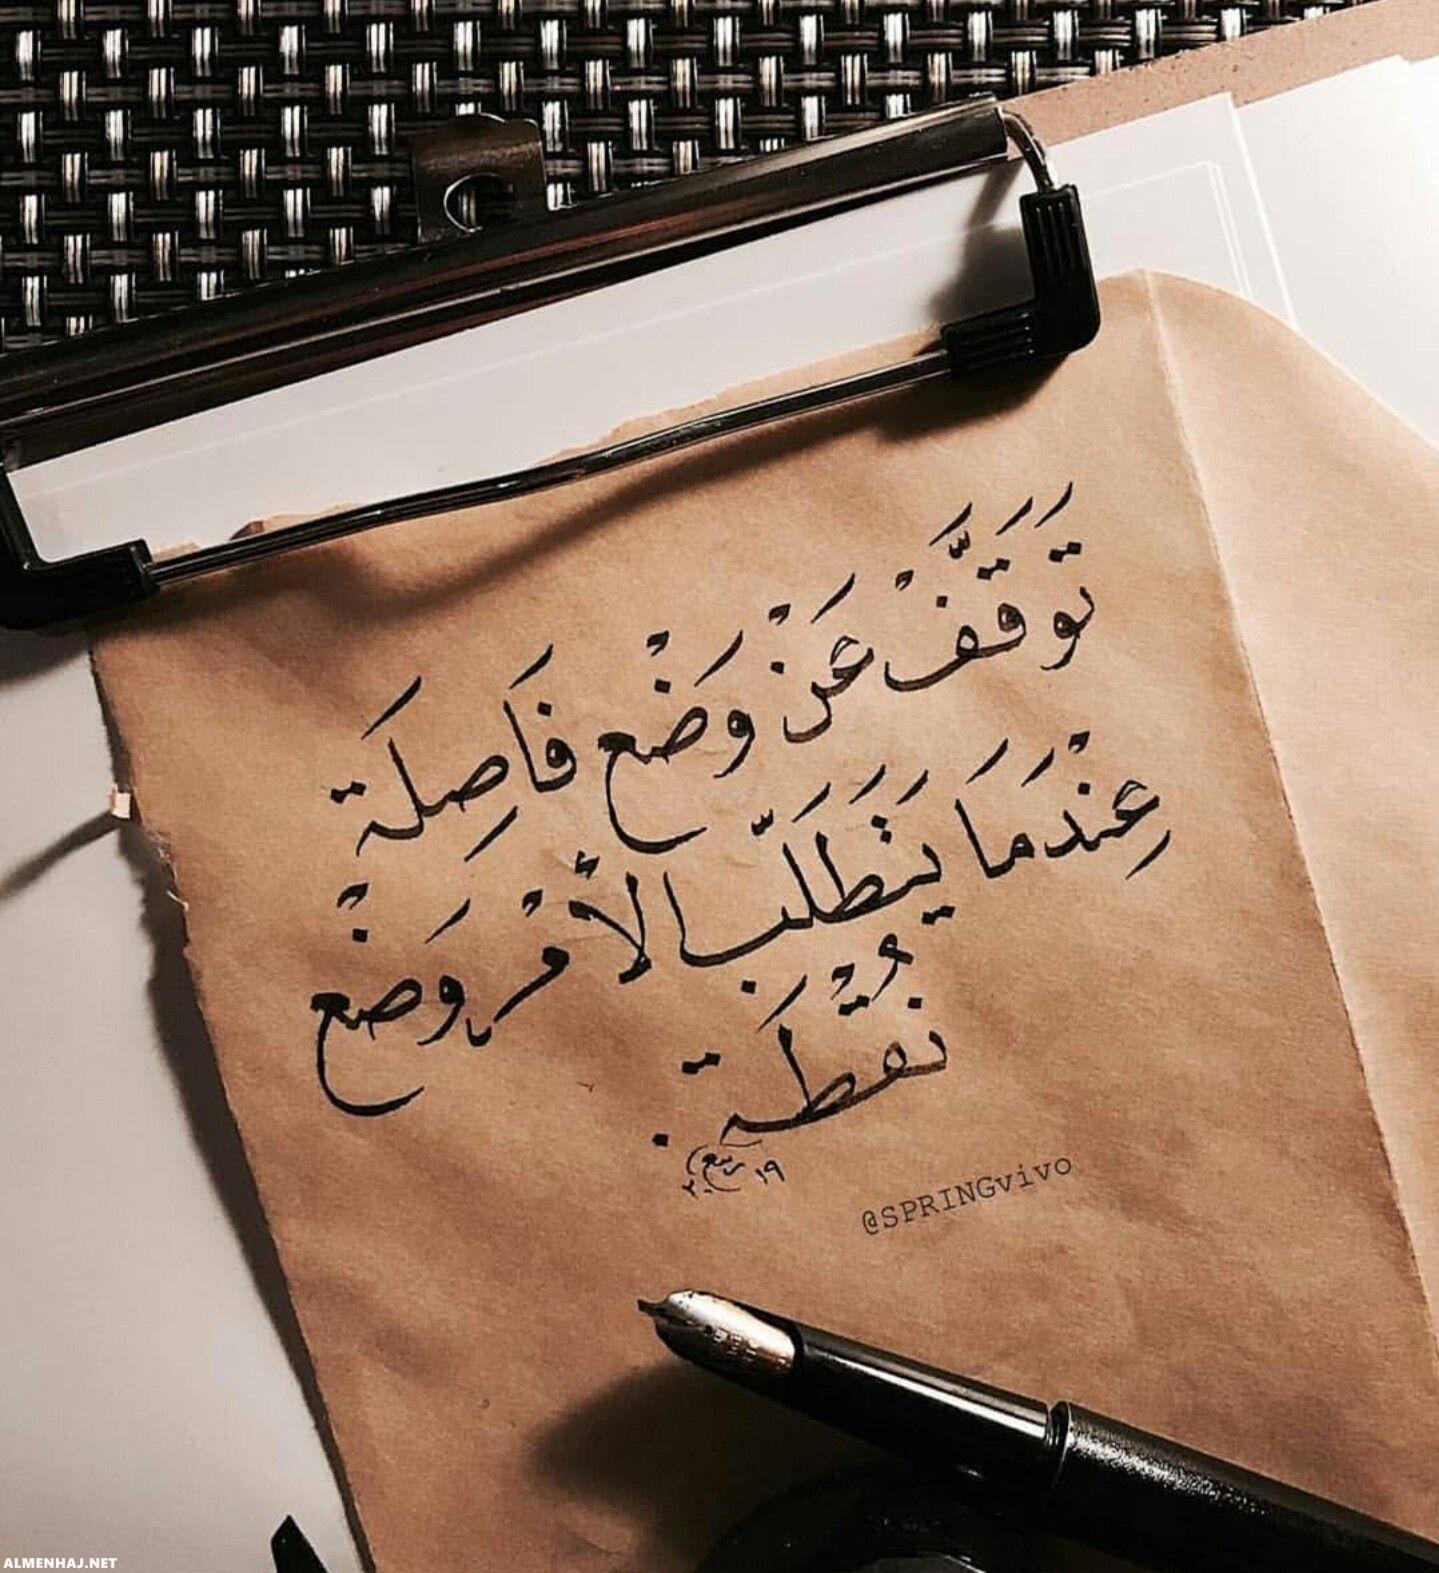 تَوَقَّفْ عَنْ وَضْع فَاصِلَة
عِنْدَمَا يَتَطَلَّب الأَمْر وَضْع
نُقْطَة .
١٩ ربيع ٢٠
@SPRINGvivo
ALMENHAJ.NET